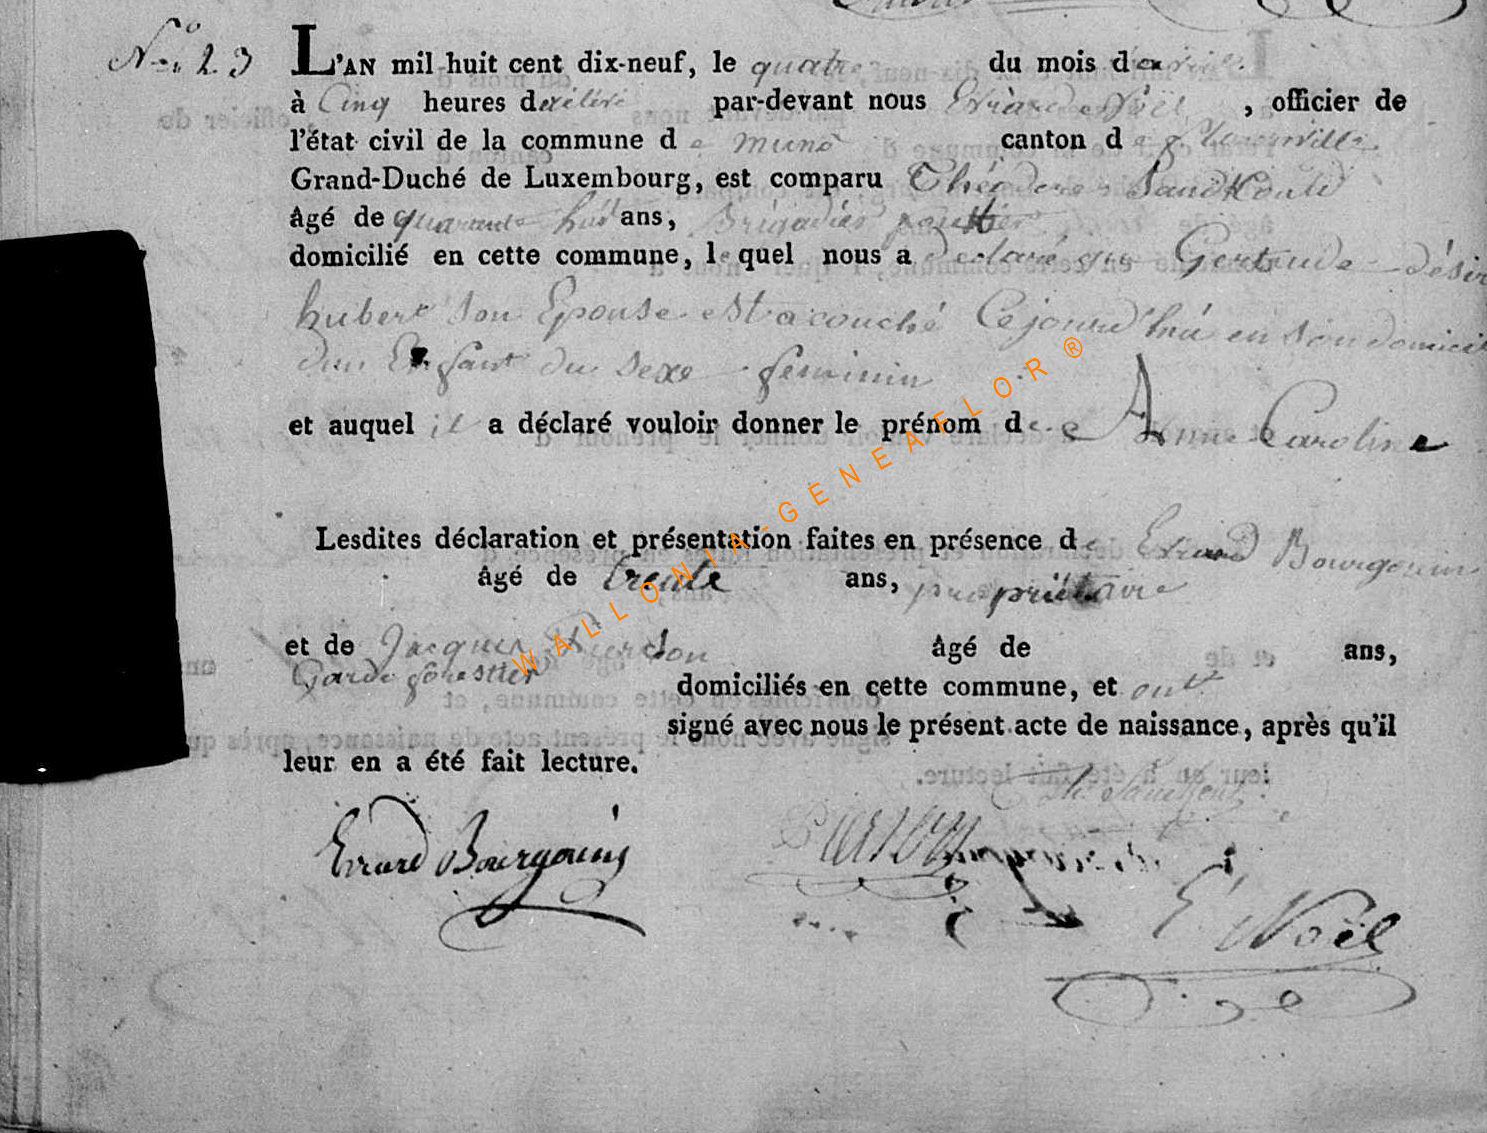 N° 23 L'AN mil huit cent dix-neuf, le quatre du mois d'avril
à Cinq heures de relevé par-devant nous Evrard Noël, officier de
l'état civil de la commune de muno canton de florenville
Grand-Duché de Luxembourg, est comparu Théodore
âgé de quarante huit ans, Brigadier
domicilié en cette commune, lequel nous a declaré que Gertrude désiré
hubert son Epouse est acouché Cejourd'hui en son domicile
dun Enfant du sexe feminin
et auquel il a déclaré vouloir donner le prénom de Anne Caroline
Lesdites déclaration et présentation faites en présence de Evrard Bourgouin
âgé de trente ans, propriétaire
et de Jacques Pierson âgé de ans,
Garde forestier domiciliés en cette commune, et ont
signé avec nous le présent acte de naissance, après qu'il
leur en a été fait lecture.
Evrard Bourgouin Pierson
E Noël
WALLONIA-GENEAFLOR®